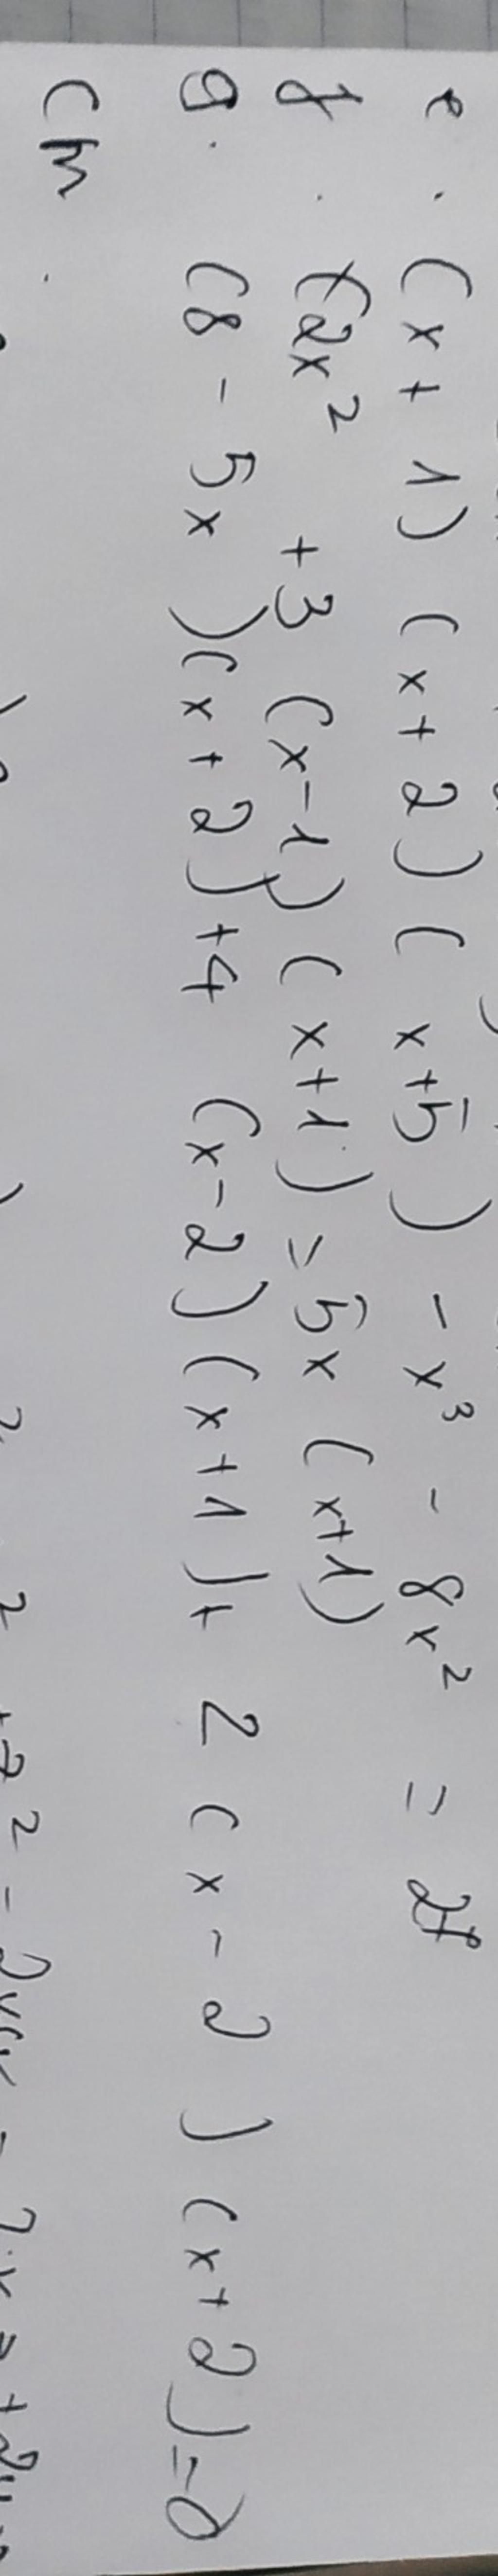 e. (x + 1) (x + 2) (x + 5) - x³ - 8x² = 27
f. (2x² + 3 (x - 1) (x + 1) = 5x (x + 1)
g. (8 - 5x) (x + 2) + 4 (x - 2) (x + 1) + 2 (x - 2) (x + 2) = 0
CM